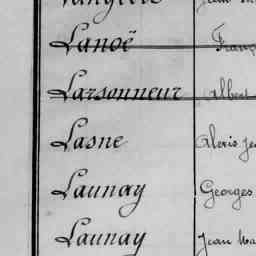 Lanoë Franç
Larsonneur Albert
Lasne Alexis Je
Launay Georges
Launay Jean Ma